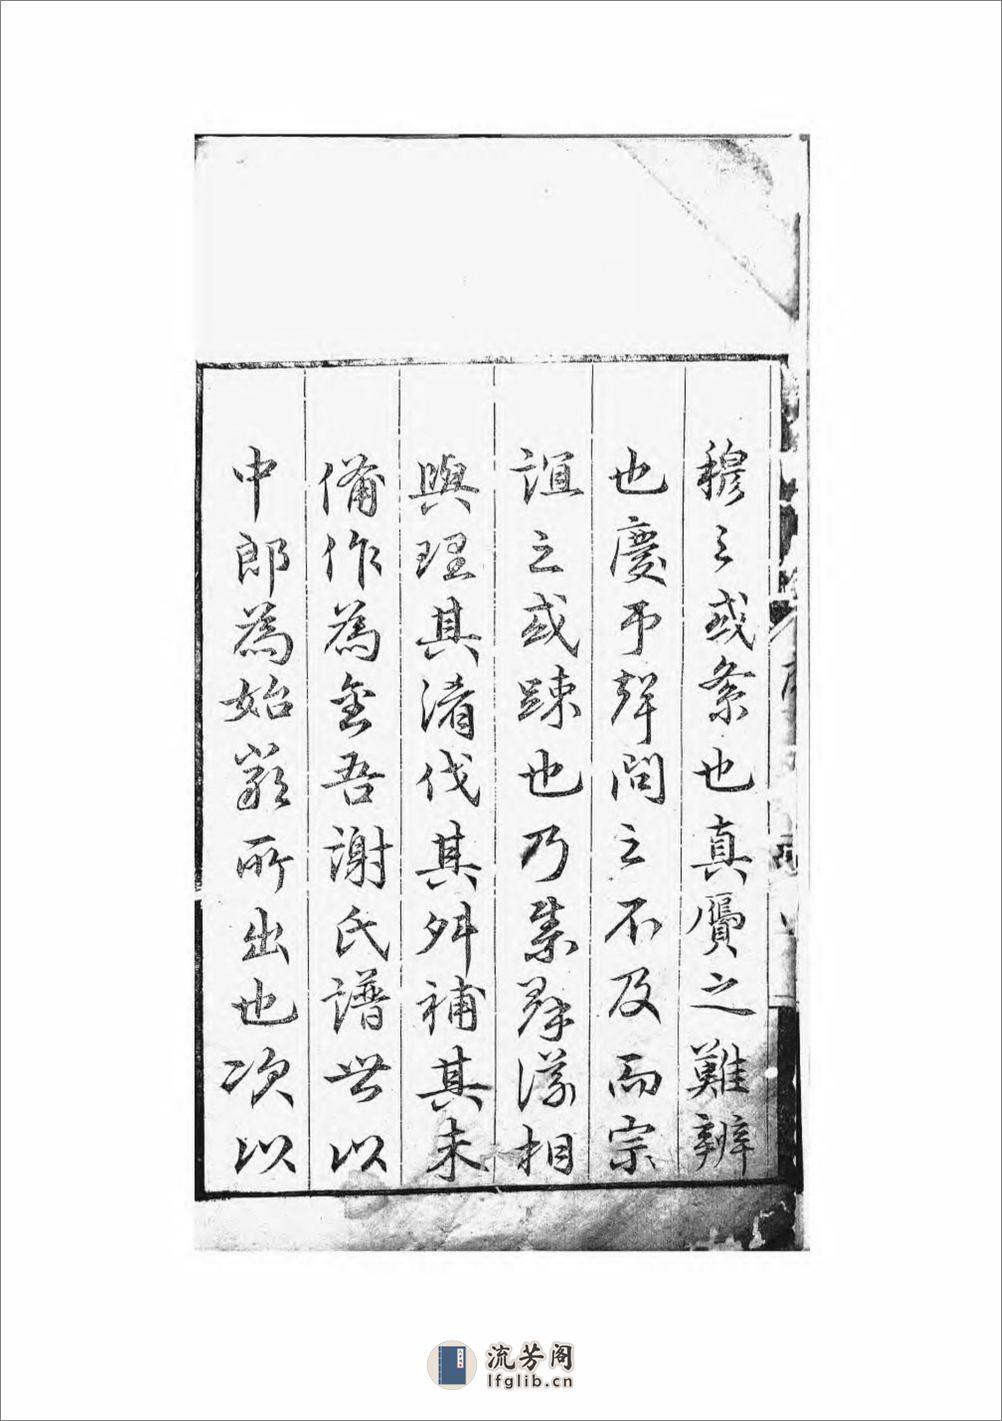 穆之或紊也真贋之難辨
也慶弔聲問之不及而宗
誼之或踈也乃集羣議相
與理其淆伐其舛補其未
備作為金吾謝氏譜世以
中郎為始嚴所出也次以
流芳阁
lfglib.cn